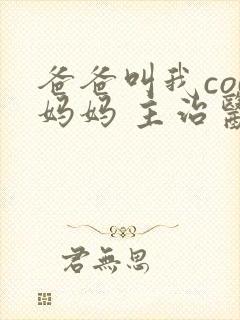 爸爸叫我co
妈妈 主治醫
君無思